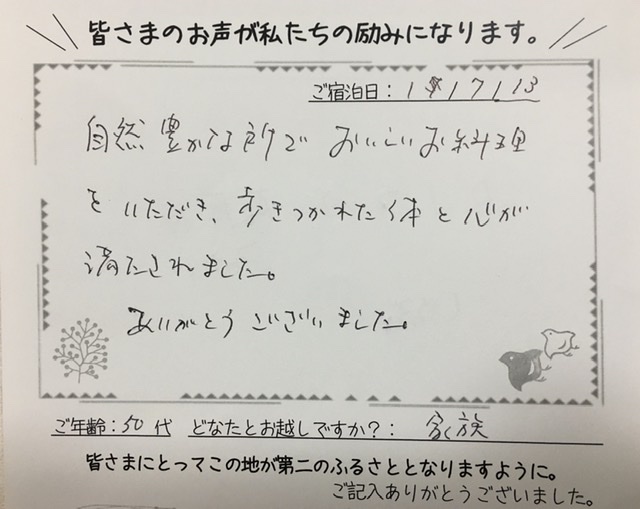 皆さまのお声が私たちの励みになります。
ご宿泊日：
自然豊かな所で おいしいお料理
を いただき、歩きつかれた体と心が
満たされました。
ありがとうございました。
ご年齢：50代 どなたとお越しですか？： 家族
皆さまにとってこの地が第二のふるさととなりますように。
ご記入ありがとうございました。